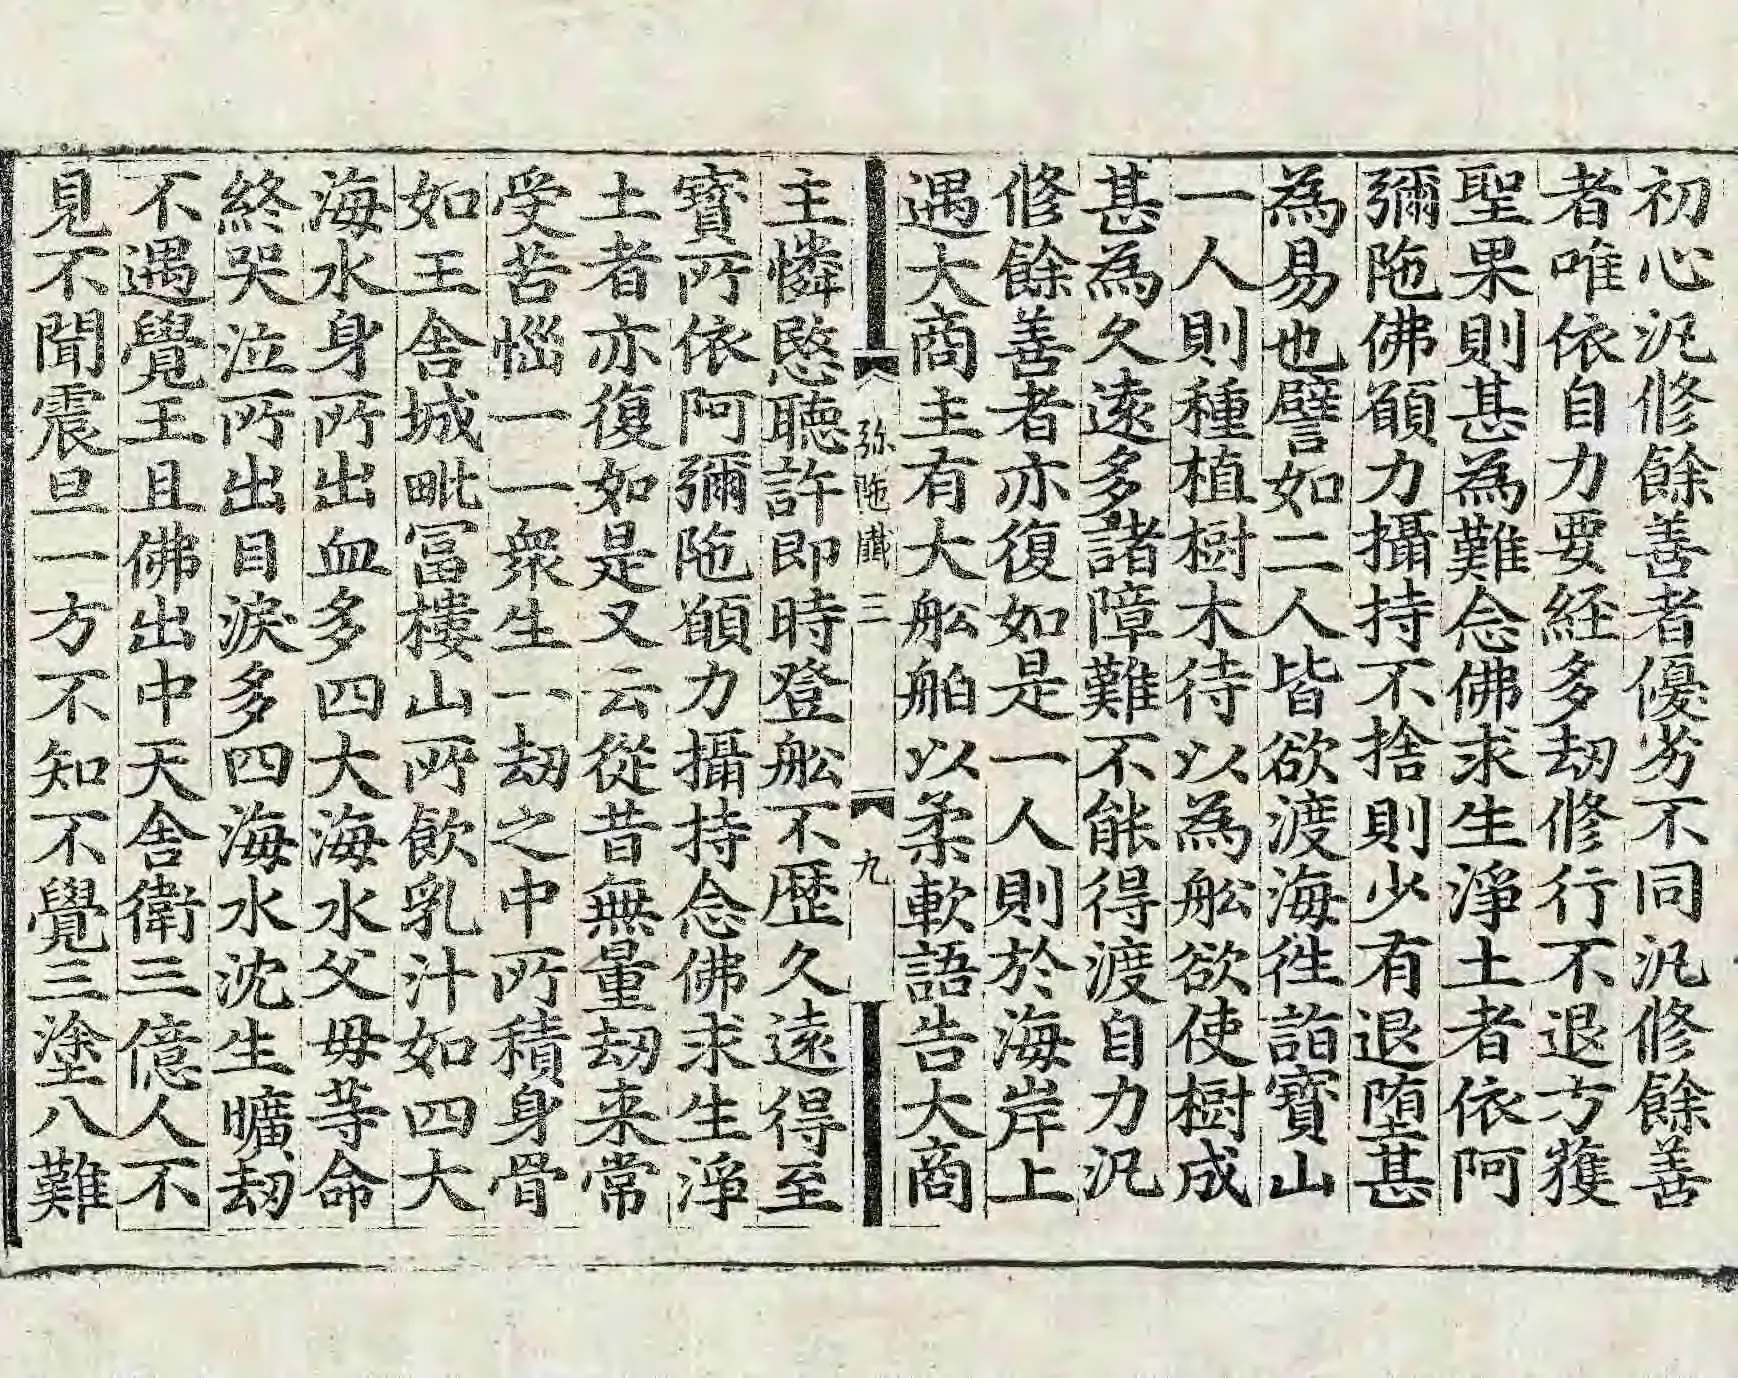 初心汎修餘善者優劣不同汎修餘善
者唯依自力要経多刼修行不退方獲
聖果則甚為難念佛求生淨土者依阿
彌陁佛願力攝持不捨則少有退堕甚
為易也譬如二人皆欲渡海徃詣寶山
一人則種植樹木待以為舩欲使樹成
甚為久遠多諸障難不能得渡自力汎
修餘善者亦復如是一人則於海岸上
遇大商主有大舩舶以柔軟語告大商
弥陁䟽三 九
主憐愍聽許即時登舩不歴久遠得至
寶所依阿彌陁願力攝持念佛求生淨
土者亦復如是又云從昔無量刼来常
受苦惱一一衆生一刼之中所積身骨
如王舍城毗冨樓山所飲乳汁如四大
海水身所出血多四大海水父母等命
終哭泣所出目淚多四海水沈生曠刼
不遇覺王且佛出中天舎衛三億人不
見不聞震旦一方不知不覺三塗八難